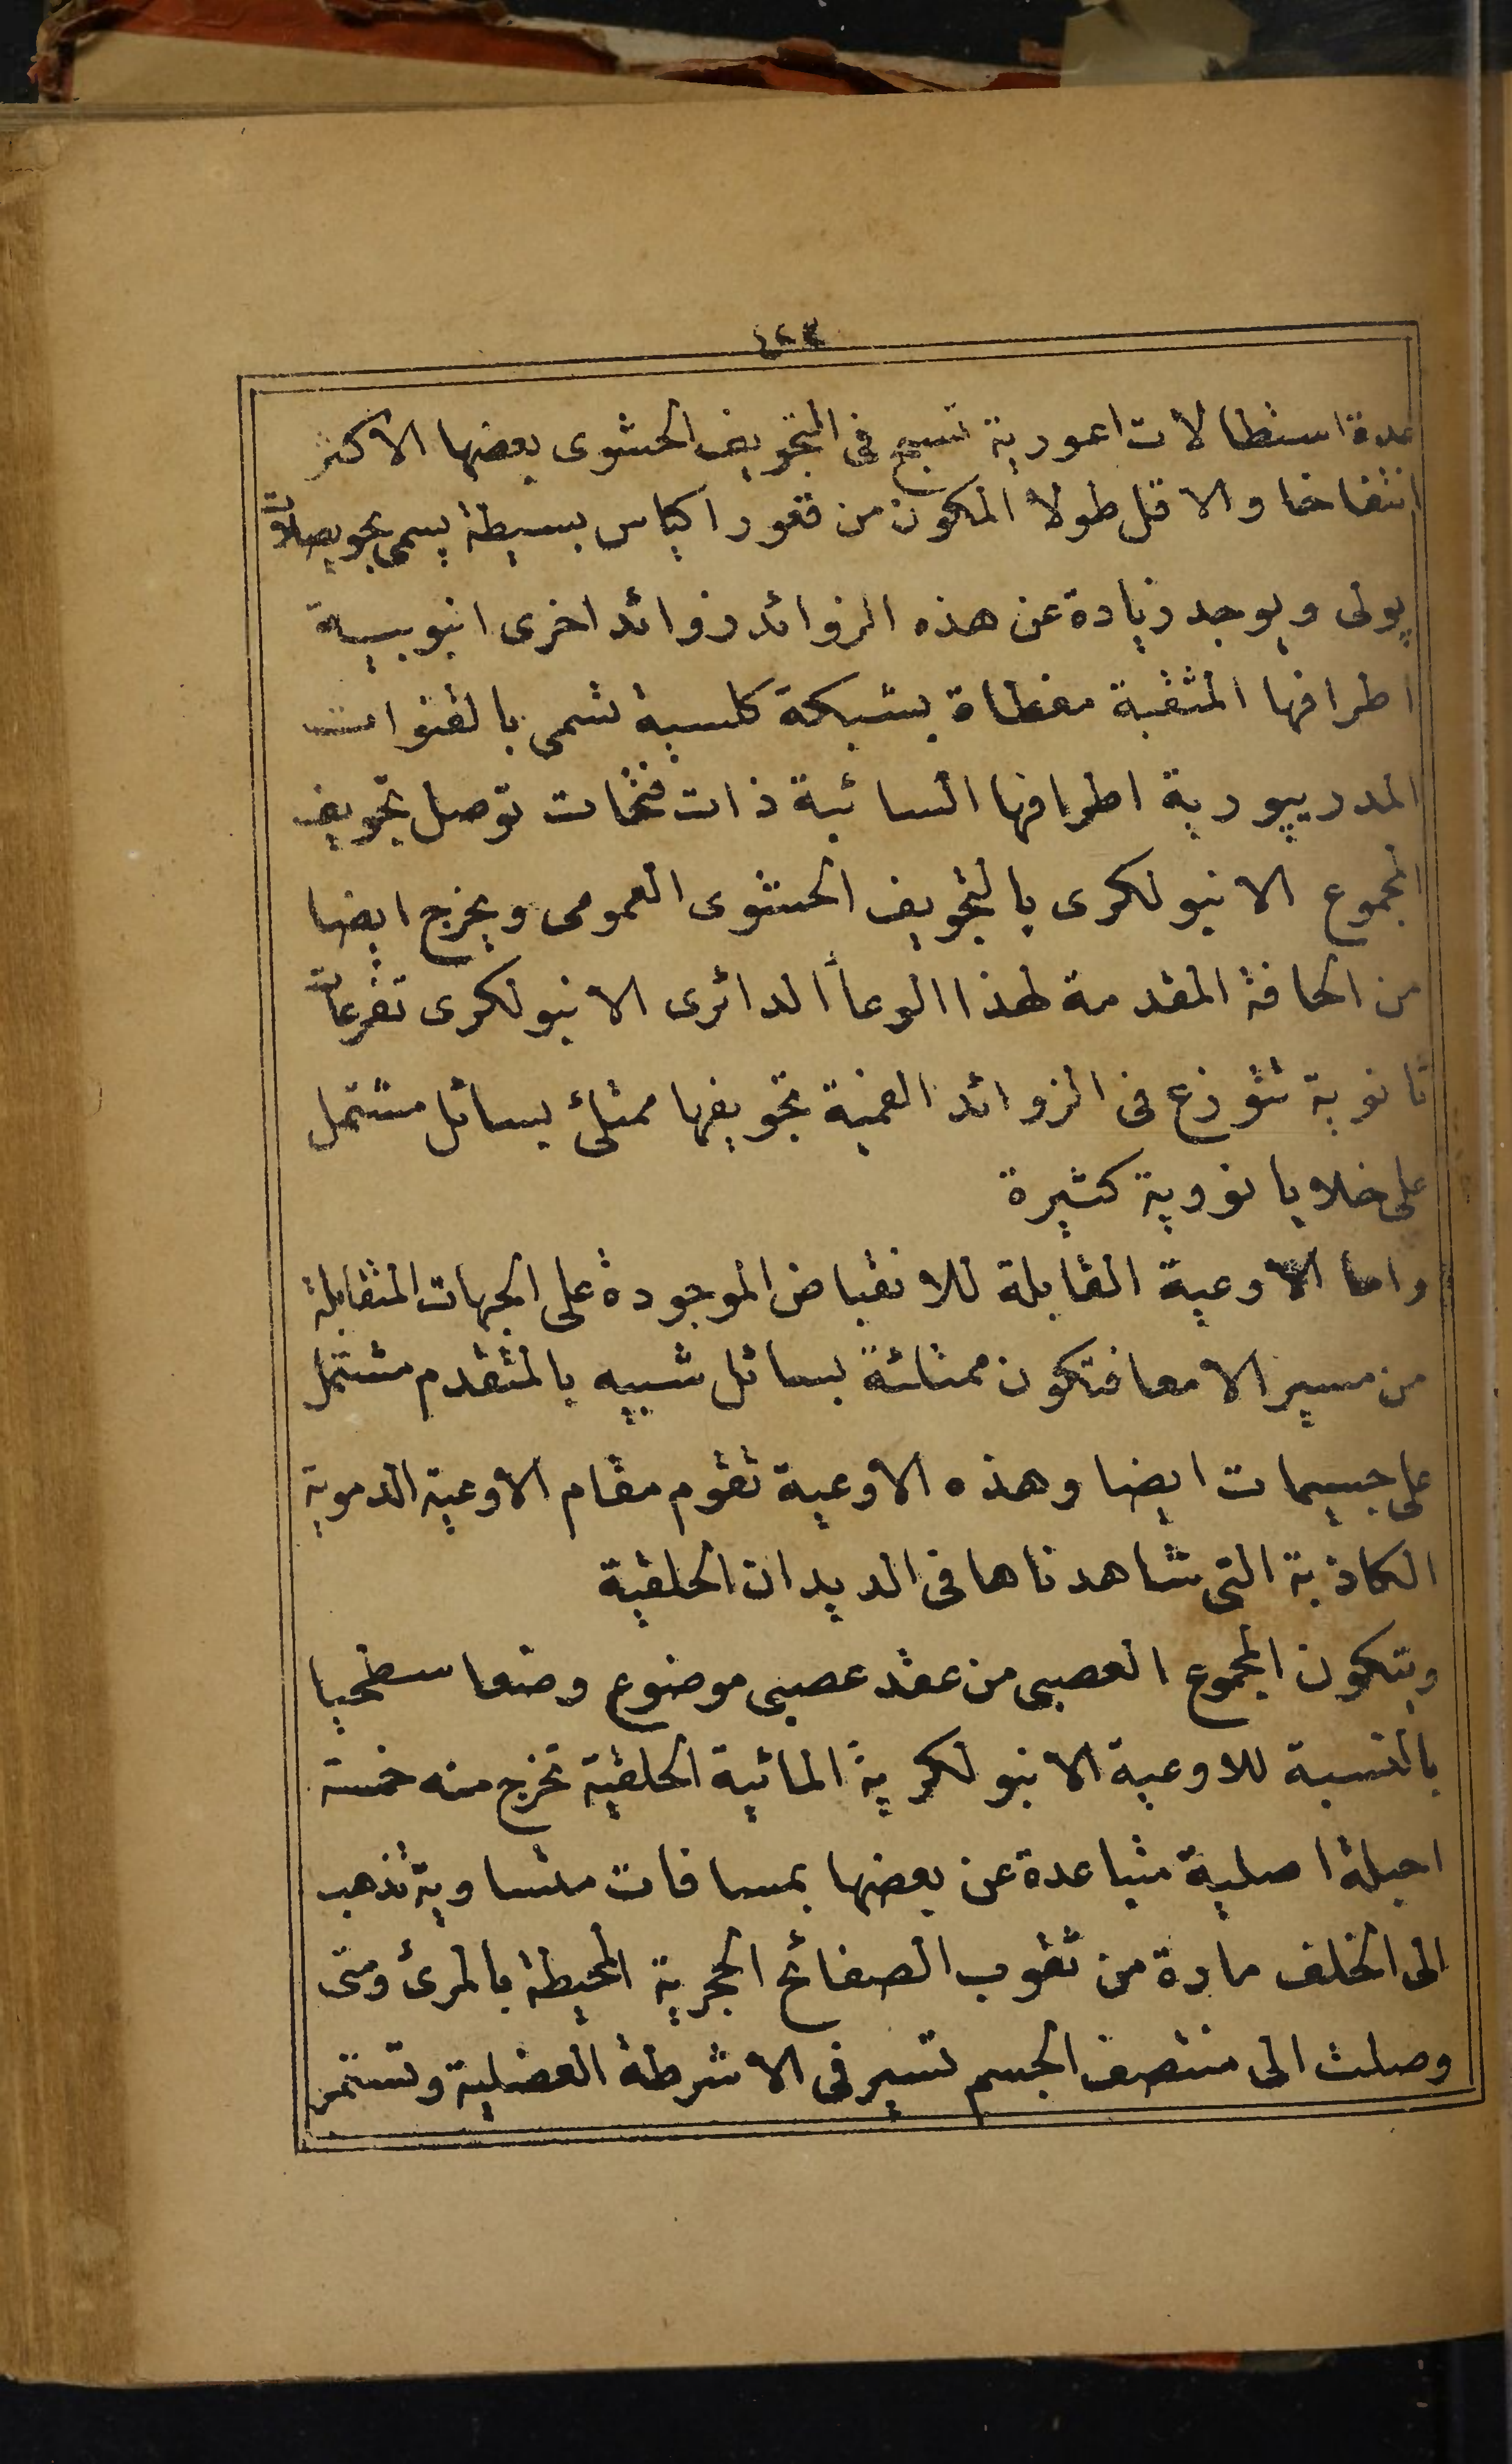 ٤٢٣
عدة استطالات اعورية تسبح فى التجويف الحشوى بعضها الاكثر
انتفاخا والاقل طولا المكون من قعور اكياس بسيطة يسمى بحويصلات
پولى ويوجد زيادة عن هذه الزوائد زوائد اخرى انبوبية
اطرافها المثقبة مغطاة بشبكة كلسية تسمى بالقنوات
المدريپورية اطرافها السائبة ذات فتحات توصل تجويف
المجموع الانبولكرى بالتجويف الحشوى العمومى ويخرج ايضا
من الحافة المقدمة لهذا الوعأ الدائرى الانبولكرى تفرعات
ثانوية تتوزع فى الزوائد الفمية تجويفها ممتلئ بسائل مشتمل
على خلايا نووية كثيرة
واما الاوعية القابلة للانقباض الموجودة على الجهات المتقابلة
من مسير الامعا فتكون ممتلئة بسائل شبيه بالمتقدم مشتمل
على جسيمات ايضا وهذه الاوعية تقوم مقام الاوعية الدموية
الكاذبة التى شاهدناها فى الديدان الحلقية
ويتكون المجموع العصبى من عقد عصبى موضوع وضعا سطحيا
بالنسبة للاوعية الانبولكرية المائية الحلقية تخرج منه خمسة
احبلة اصلية متباعدة عن بعضها بمسافات متساوية تذهب
الى الخلف مارة من ثقوب الصفائح الحجرية المحيطة بالمرئ ومتى
وصلت الى منتصف الجسم تسير فى الاشرطة العضلية وتستمر